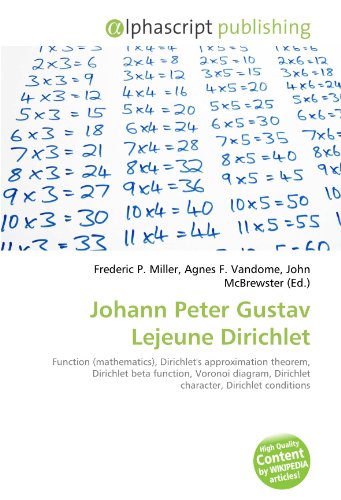 alphascript publishing
1×4=4 1×5=5 1×6=6
2×3=6 2×4=8 2×5=10 2×6=12
3×3=9 3×4=12 3×5=15 3×6=18
4×3=12 4×4=16 4×5=20 4×6=24
5×3=15 5×4=20 5×5=25 5×6=3
6×3=18 6×4=24 6×5=30 6×6=
7×3=21 7×4=28 7×5=35 7×6=
8×3=24 8×4=32 8×5=40 8×6=
9×3=27 9×4=36 9×5=45 9×6
10×3=30 10×4=40 10×5=50 10×
11×3=33 11×4=44 11×5=55 11×
Frederic P. Miller, Agnes F. Vandome, John
McBrewster (Ed.)
Johann Peter Gustav
Lejeune Dirichlet
Function (mathematics), Dirichlet's approximation theorem,
Dirichlet beta function, Voronoi diagram, Dirichlet
character, Dirichlet conditions
High Quality
Content
by WIKIPEDIA
articles!